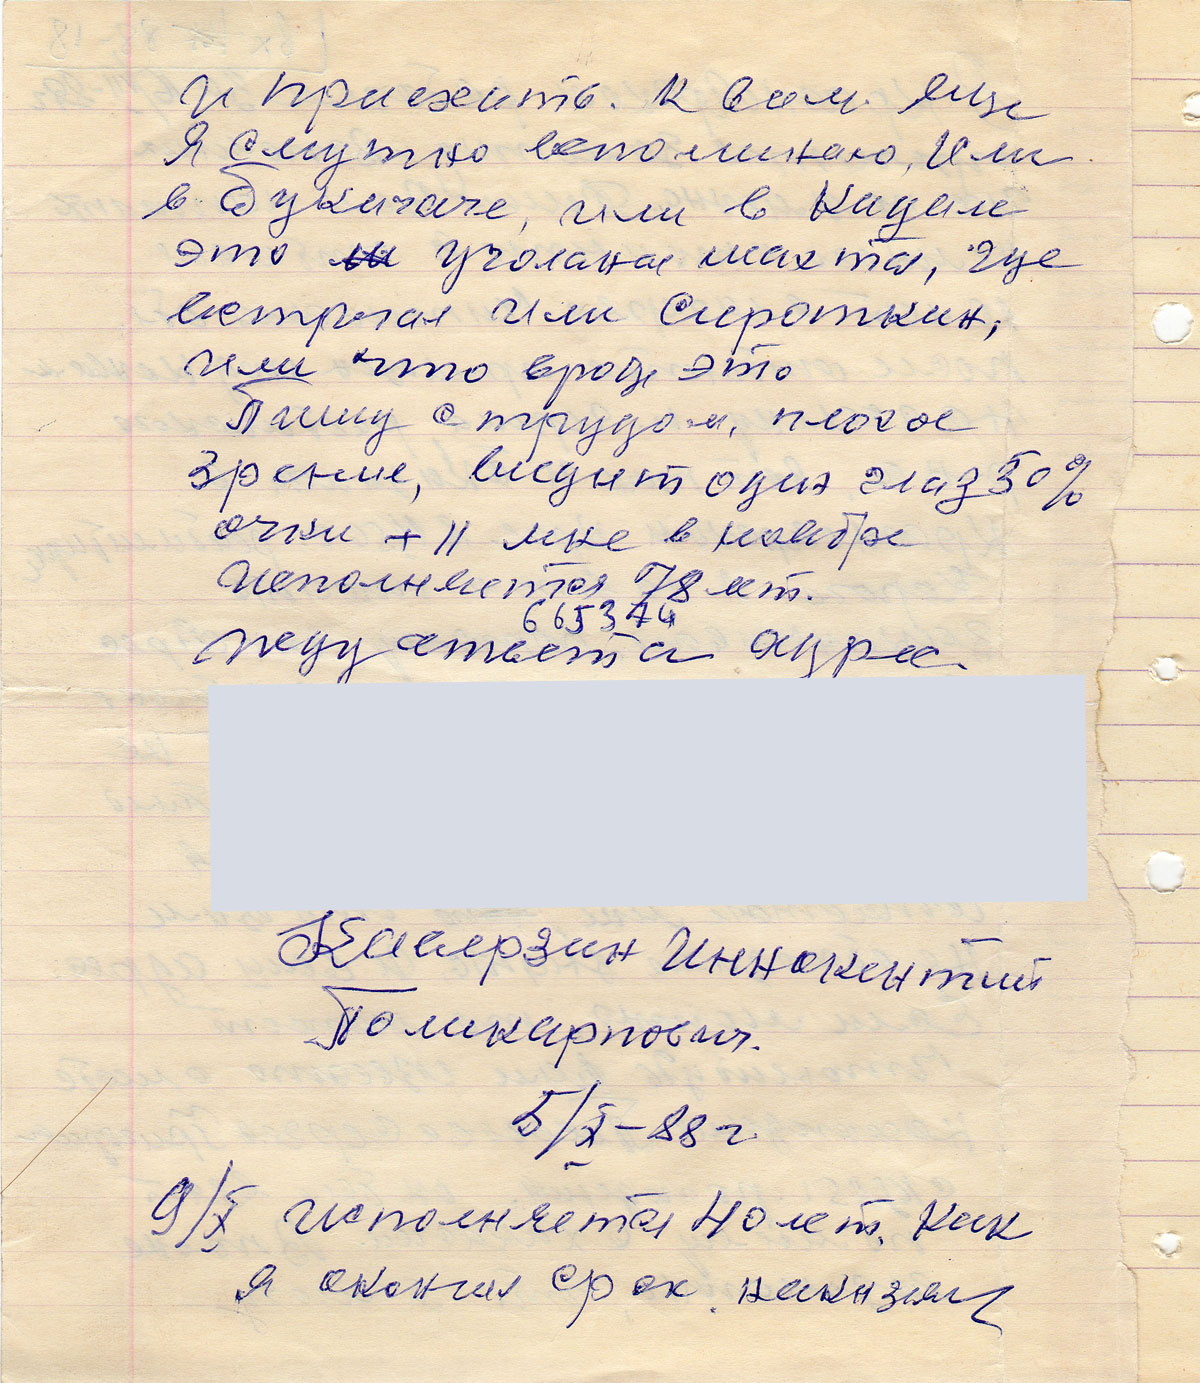 и приежить. К вам. еще
Я смутно вспоминаю, Или
в Букачаче, или в Кадале
это угольная шахта, где
встречал или Сироткин,
или что вроде это
Пишу с трудом, плохое
зрение, видит один глаз 50%
очки + 11 мне в ноябре
исполняется 78 лет.
665374
жду ответа адрес.
Каверзин Иннокентий
Поликарпович.
5/X – 88 г.
9/X исполняется 40 лет. Как
я окончил срок.